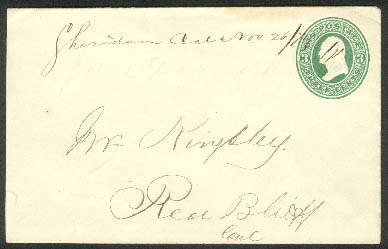 Sheridan Cala Nov 26
Mr Kingsley.
Red Bluff
Cal